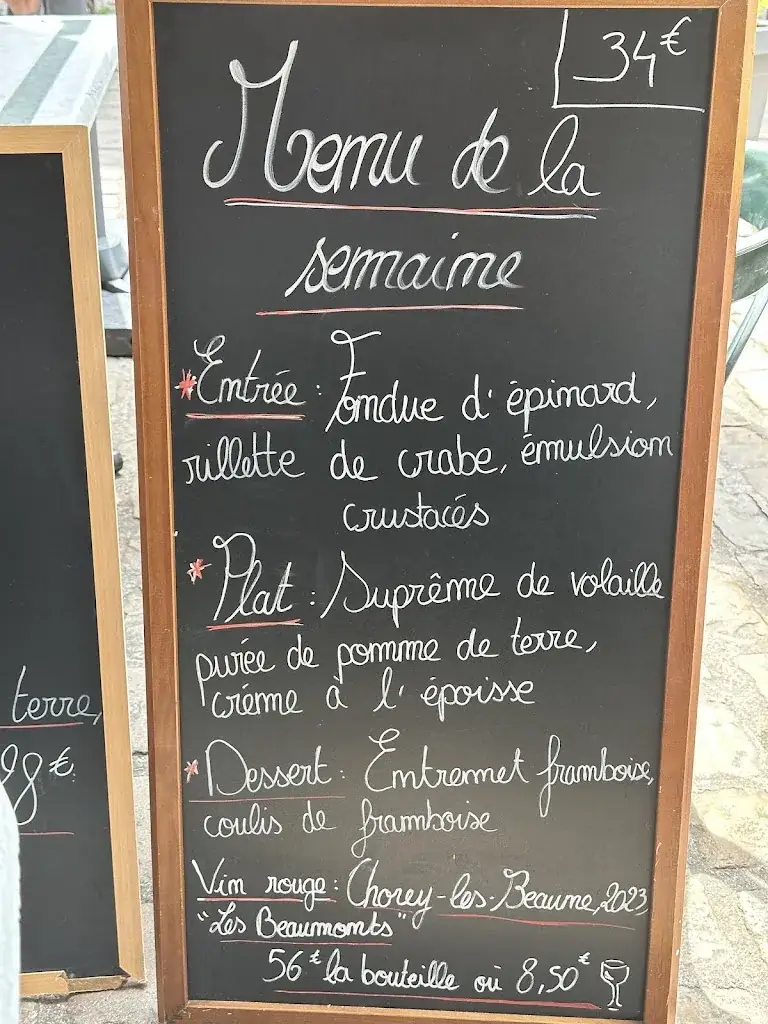 34€
Menu de la
semaine
*Entrée : Fondue d'épinard,
rillette de crabe, émulsion
crustacés
*Plat : Suprême de volaille
purée de pomme de terre,
crème à l'époisse
*Dessert : Entremet framboise,
coulis de framboise
Vin rouge : Chorey-les-Beaune, 2023,
"Les Beaumonts"
56€ la bouteille ou 8,50€
terre,
98€